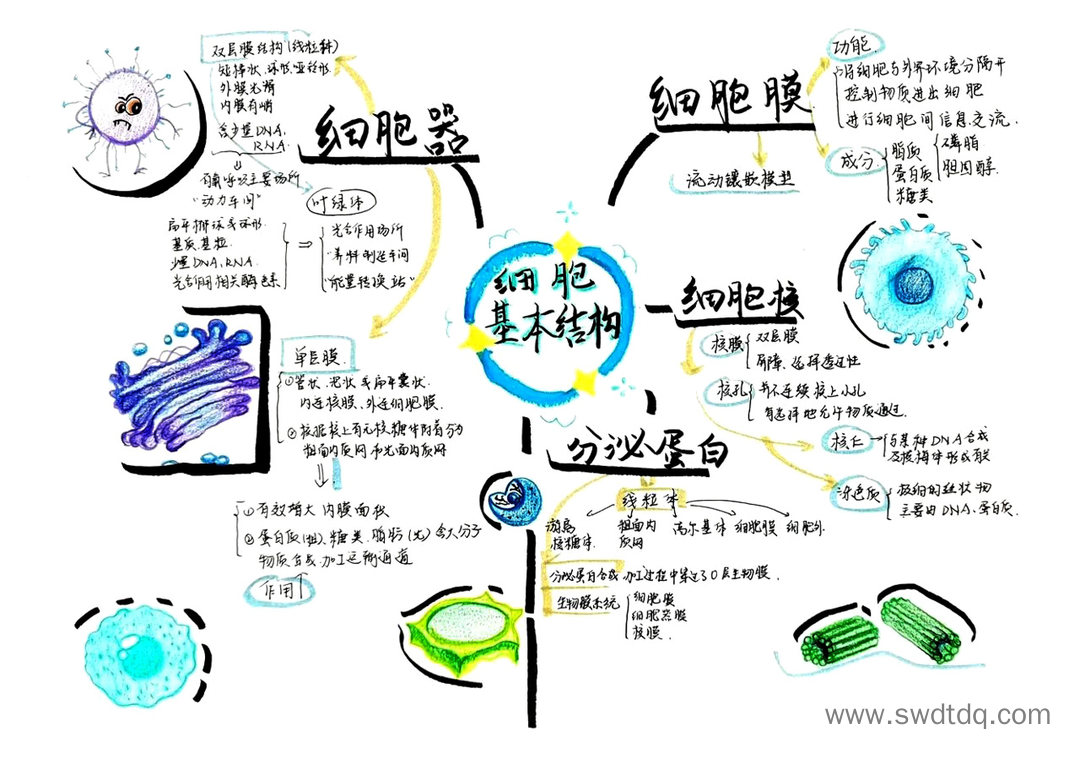 细胞
基本结构
细胞器
双层膜结构(线粒体)
短棒状、球形、哑铃形
外膜光滑
内膜有嵴
含少量DNA、
RNA.
有氧呼吸主要场所
"动力车间"
叶绿体
扁平椭球或球形.
基质、基粒.
少量DNA、RNA.
光合作用相关酶色素
光合作用场所
"养料制造车间
"能量转换站"
单层膜
①管状、泡状或扁平囊状.
内连核膜、外连细胞膜.
②根据核上有无核糖体附着分为
粗面内质网和光面内质网
①有效增大内膜面积
②蛋白质(粗)、糖类、脂肪(光)含大分子
物质合成、加工运输通道
作用
细胞膜
功能
将细胞与外界环境分隔开
控制物质进出细胞
进行细胞间信息交流.
成分
脂质
蛋白质
糖类
磷脂
胆固醇.
流动镶嵌模型
细胞核
核膜
双层膜
屏障、选择透过性
核孔
并不连续核上小孔
有选择地允许物质通过.
核仁
与某种DNA合成
及核梅体形成有关
染色质
极细的丝状物
主要由DNA、蛋白质.
分泌蛋白
线粒体
游离
核糖体.
粗面内
质网
高尔基体
细胞膜
细胞外
分泌蛋白合成加工过程中穿过30层生物膜.
生物膜系统
细胞膜
细胞器膜
核膜.
www.swdtdq.com